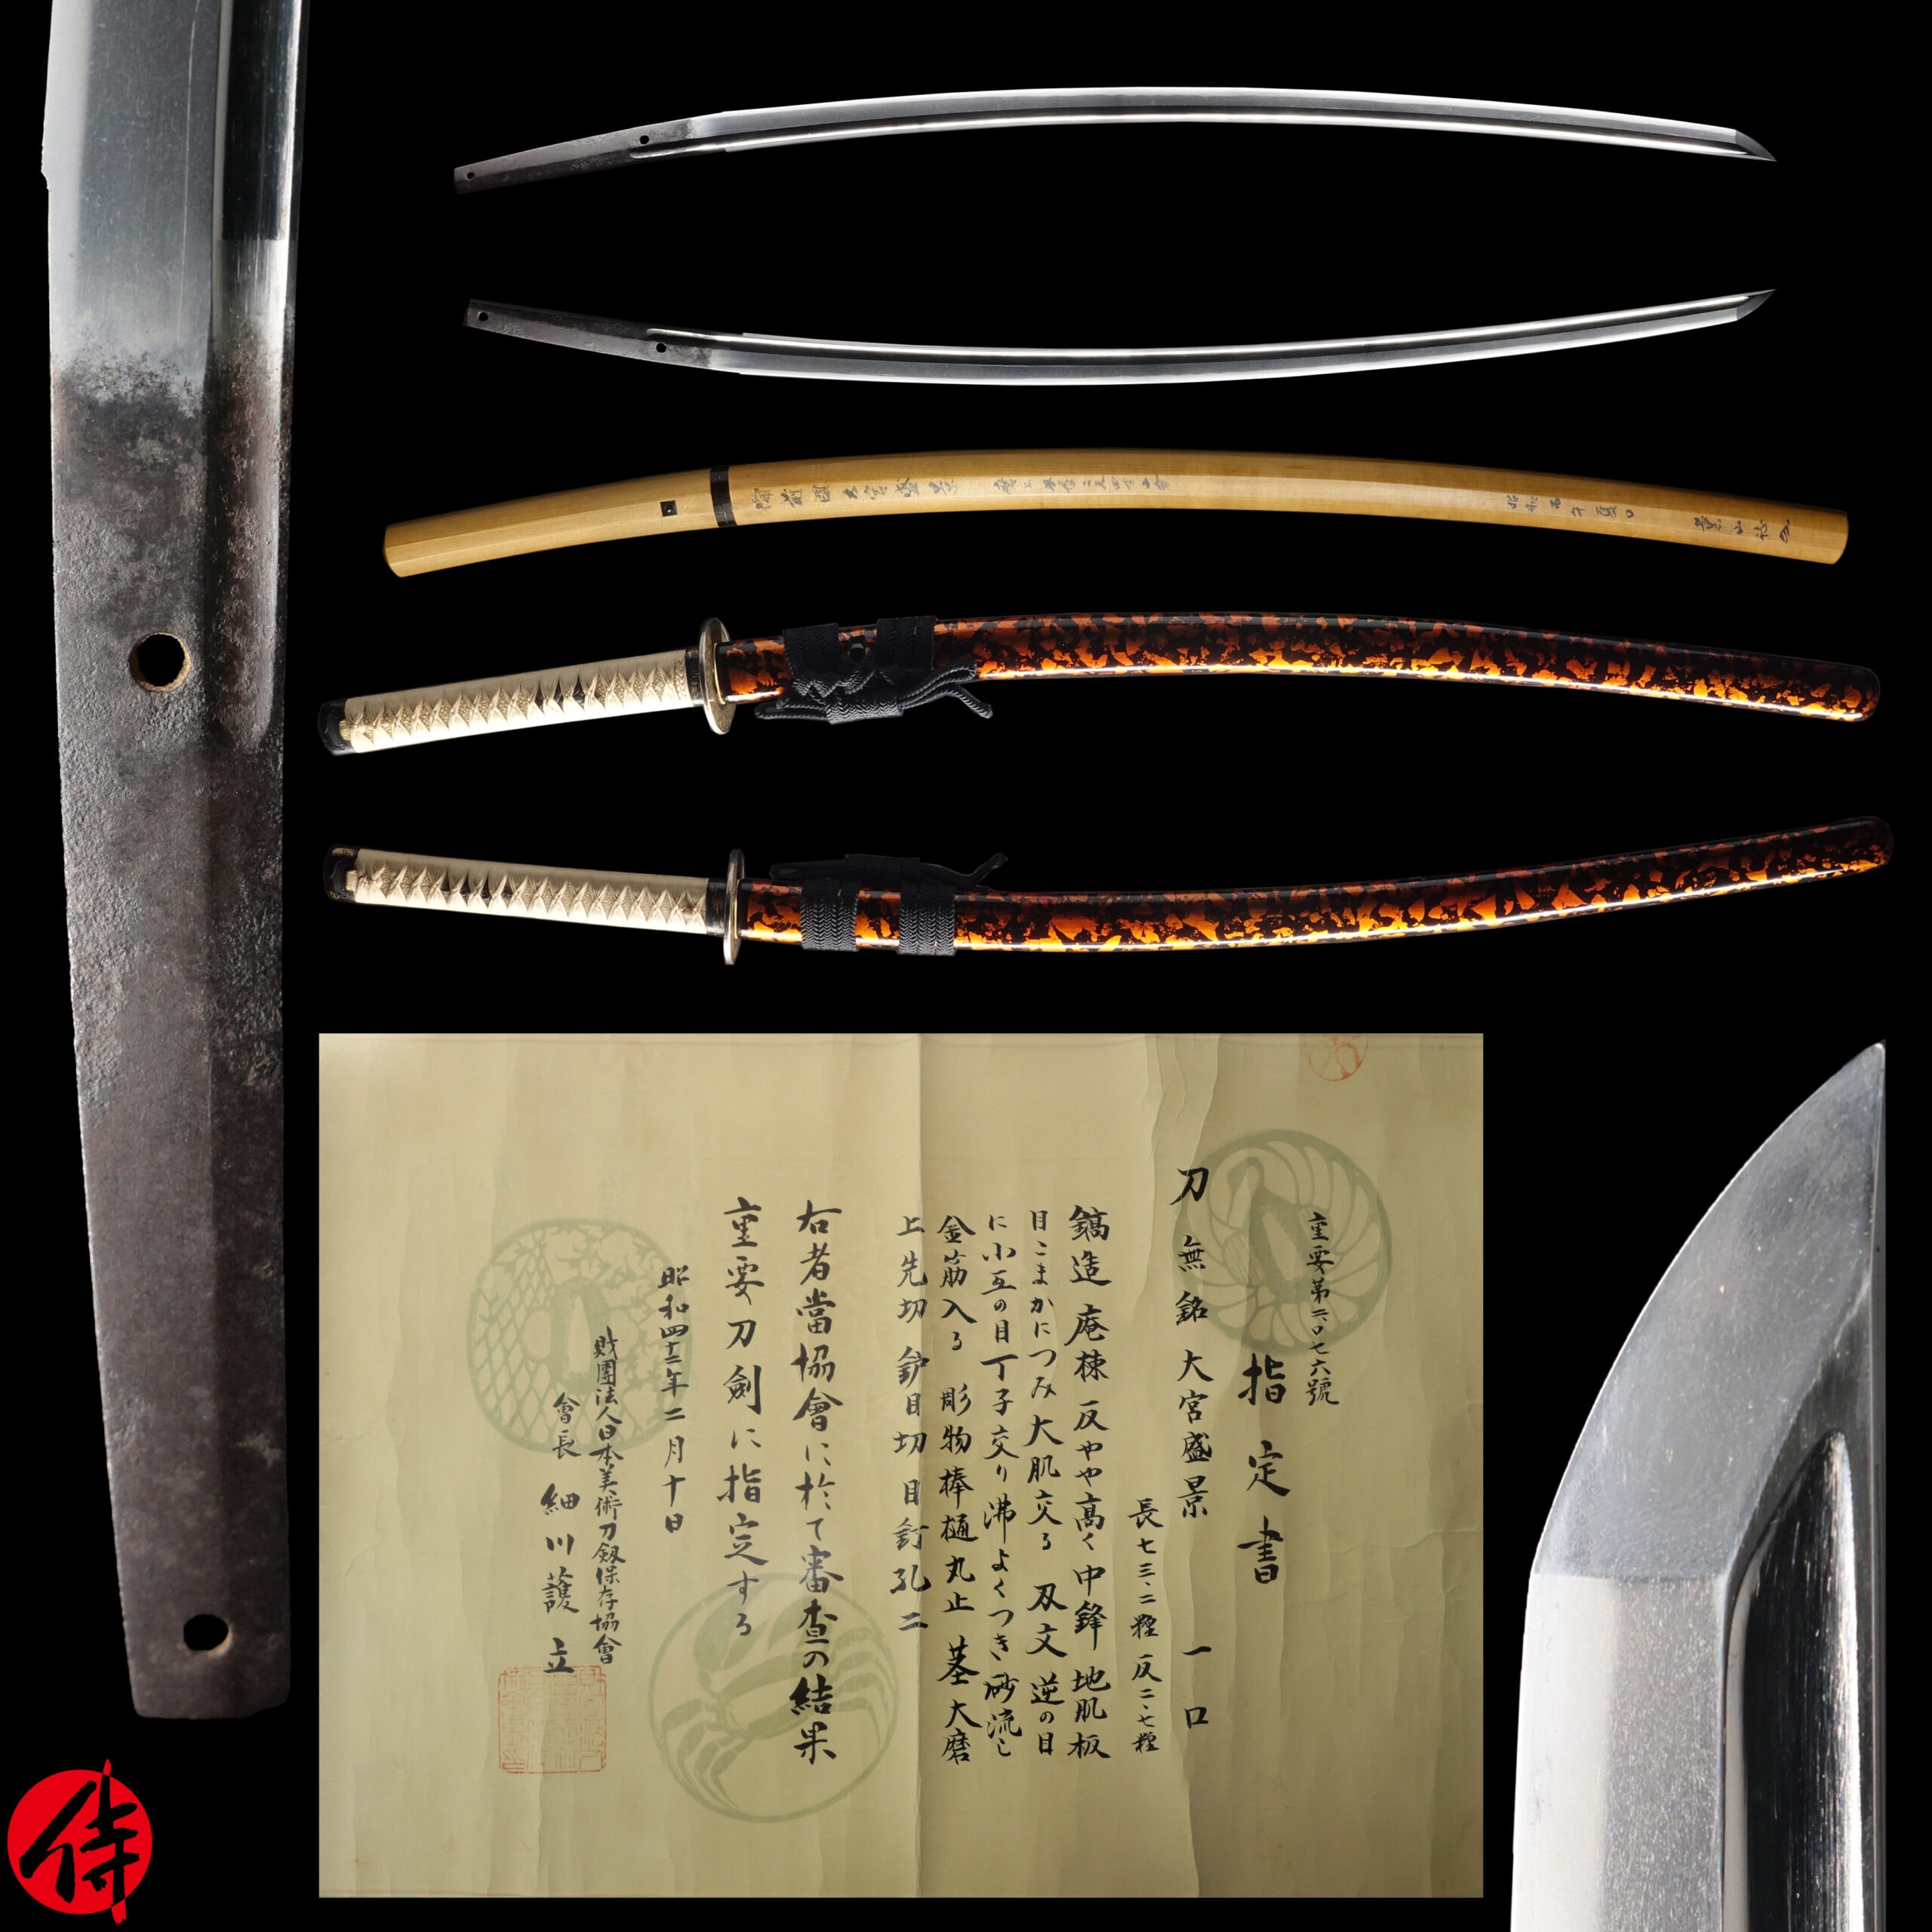 備前國大宮盛景
昭和丙午夏日
重要第二〇七六號
指定書
刀 無銘 大宮盛景 一口
長七三・二糎 反二・七糎
鎬造 庵棟 反やや高く 中鋒 地肌板
目こまかにつみ大肌交る 刃文 逆の目
に小互の目丁子交り沸よくつき砂流し
金筋入る 彫物棒樋丸止 茎大磨
上先切 鈩目切 目釘孔二
右者當協會に於て審査の結果
重要刀劍に指定する
昭和四十二年二月十日
財團法人日本美術刀剱保存協會
會長 細川護立
侍